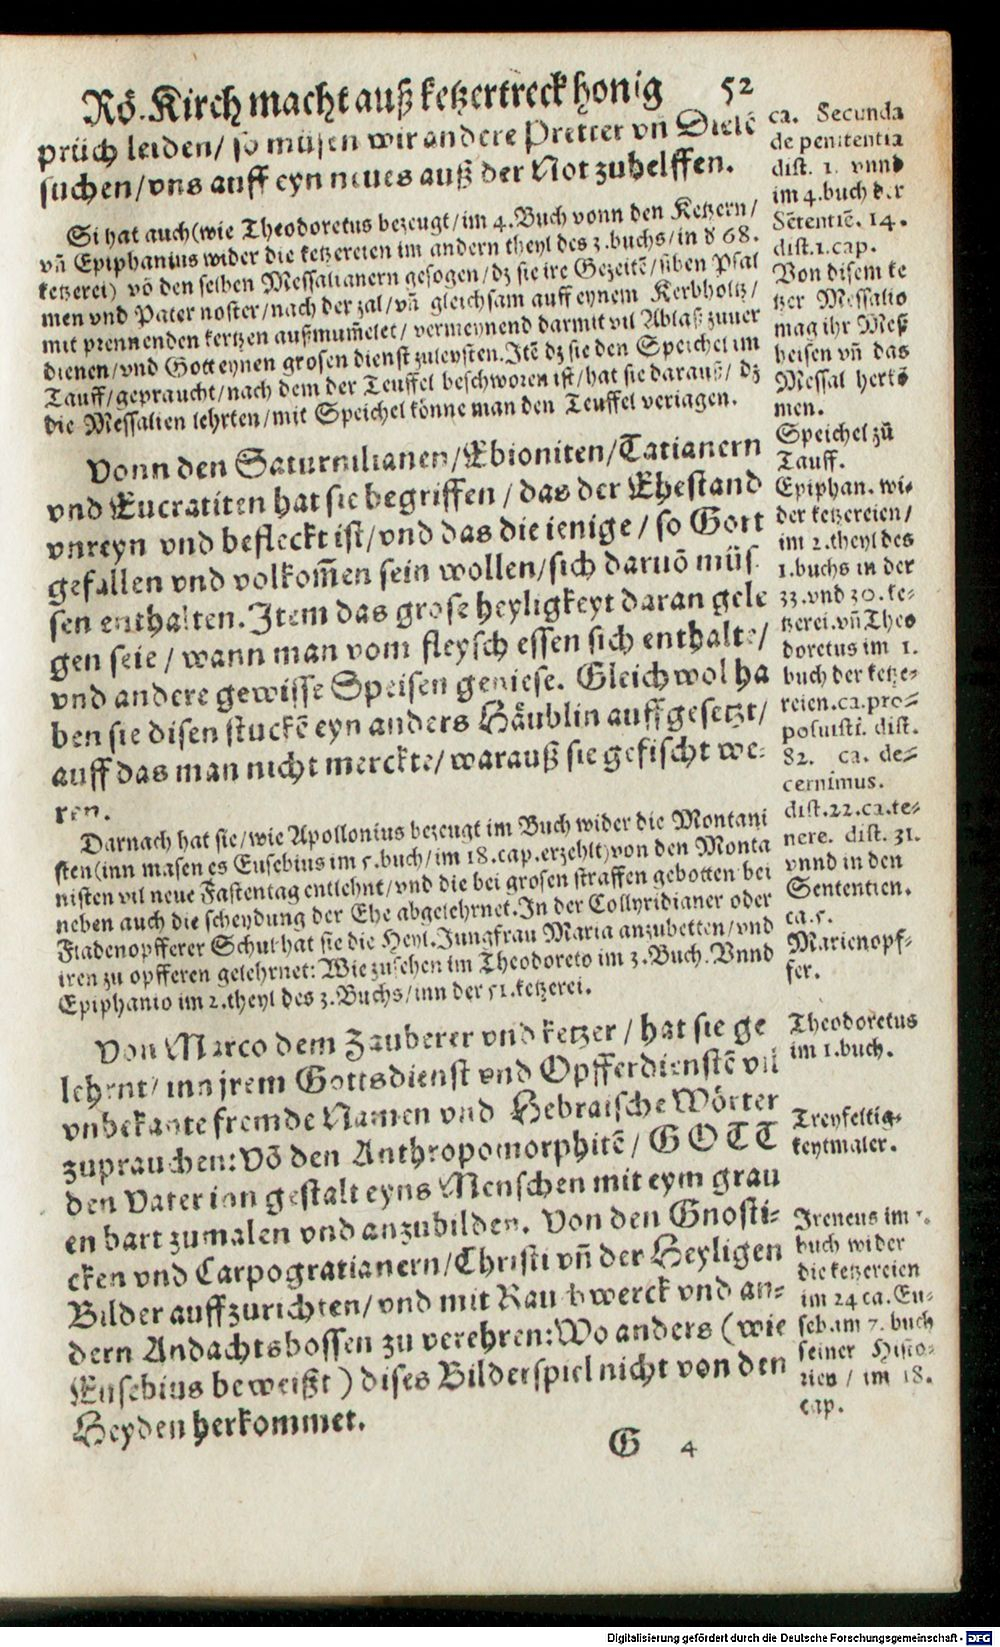 Rö. Kirch macht auß ketzertreck honig 52
prüch leiden/ so müsen wir andere Pretter vn̄ Dielē
suchen/ vns auff eyn neues auß der Not zuhelffen.
Si hat auch (wie Theodoretus bezeugt/ im 4. Buch vonn den Ketzern/
vn̄ Epiphanius wider die ketzereien im andern theyl des 3. buchs/ in d 68.
ketzerei) vō den selben Messalianern gesogen/ dz sie ire Gezeitē/ siben Psal
men vnd Pater noster/ nach der zal/ vn̄ gleichsam auff eynem Kerbholtz/
mit prennenden kertzen außmum̄elet/ vermeynend darmit vil Ablaß zuuer
dienen/ vnd Gott eynen grosen dienst zuleysten. Itē dz sie den Speichel im
Tauff/ gepraucht/ nach dem der Teuffel beschworen ist/ hat sie darauß/ dz
die Messalien lehrten/ mit Speichel könne man den Teuffel veriagen.
Vonn den Saturnilianen/ Ebioniten/ Tatianern
vnd Eucratiten hat sie begriffen/ das der Ehestand
vnreyn vnd befleckt ist/ vnd das die ienige/ so Gott
gefallen vnd volkom̄en sein wollen/ sich daruō müs
sen enthalten. Item das grose heyligkeyt daran gele
gen seie/ wann man vom fleysch essen sich enthalte/
vnd andere gewisse Speisen geniese. Gleich wol ha
ben sie disen stuckē eyn anders Häublin auffgesetzt/
auff das man nicht merckte/ warauß sie gefischt we-
ren.
Darnach hat sie/ wie Apollonius bezeugt im Buch wider die Montani
sten (inn masen es Eusebius im 5. buch/ im 18. cap. erzehlt) von den Monta
nisten vil neue Fastentag entlehnt/ vnd die bei grosen straffen gebotten bei
neben auch die scheydung der Ehe abgelehrnet. In der Collyridianer oder
Fladenopfferer Schul hat sie die Heyl. Jungfrau Maria anzubetten/ vnd
iren zu opfferen gelehrnet: Wie zusehen im Theodoreto im 3. Buch. Vnnd
Epiphanio im 2. theyl des 3. Buchs/ inn der 51. ketzerei.
Von Marco dem Zauberer vnd ketzer/ hat sie ge
lehrnt/ inn jrem Gottsdienst vnd Opfferdienstē vil
vnbekante fremde Namen vnd Hebraische Wörter
zuprauchen: Vō den Anthropomorphitē/ GOTT
den Vater inn gestalt eyns Menschen mit eym grau
en bart zumalen vnd anzubilden. Von den Gnosti-
cken vnd Carpogratianern/ Christi vn̄ der Heyligen
Bilder auffzurichten/ vnd mit Rauchwerck vnd an-
dern Andachtsbossen zu verehren: Wo anders (wie
Eusebius beweißt) dises Bilderspiel nicht von den
Heyden herkommet.
G 4
ca. Secunda
de penitentia
dist. 1. vnnd
im 4. buch der
Sētentiē. 14.
dist. 1. cap.
Von disem ke
tzer Messalio
mag ihr Meß
heisen vn̄ das
Messal herkō
men.
Speichel zū
Tauff.
Epiphan. wi-
der ketzereien/
im 2. theyl des
1. buchs in der
33. vnd 30. ke-
tzerei. vn̄ Theo
doretus im 1.
buch der ketze-
reien. ca. pro-
posuisti. dist.
82. ca. de-
cernimus.
dist. 22. ca. te-
nere. dist. 31.
vnnd in den
Sententien.
ca. 5.
Marienopf-
fer.
Theodoretus
im 1. buch.
Treyfeltig-
keytmaler.
Ireneus im
buch wider
die ketzereien
im 24 ca. Eu-
seb. im 7. buch
seiner Histo-
rien/ im 18.
cap.
Digitalisierung gefördert durch die Deutsche Forschungsgemeinschaft - DFG